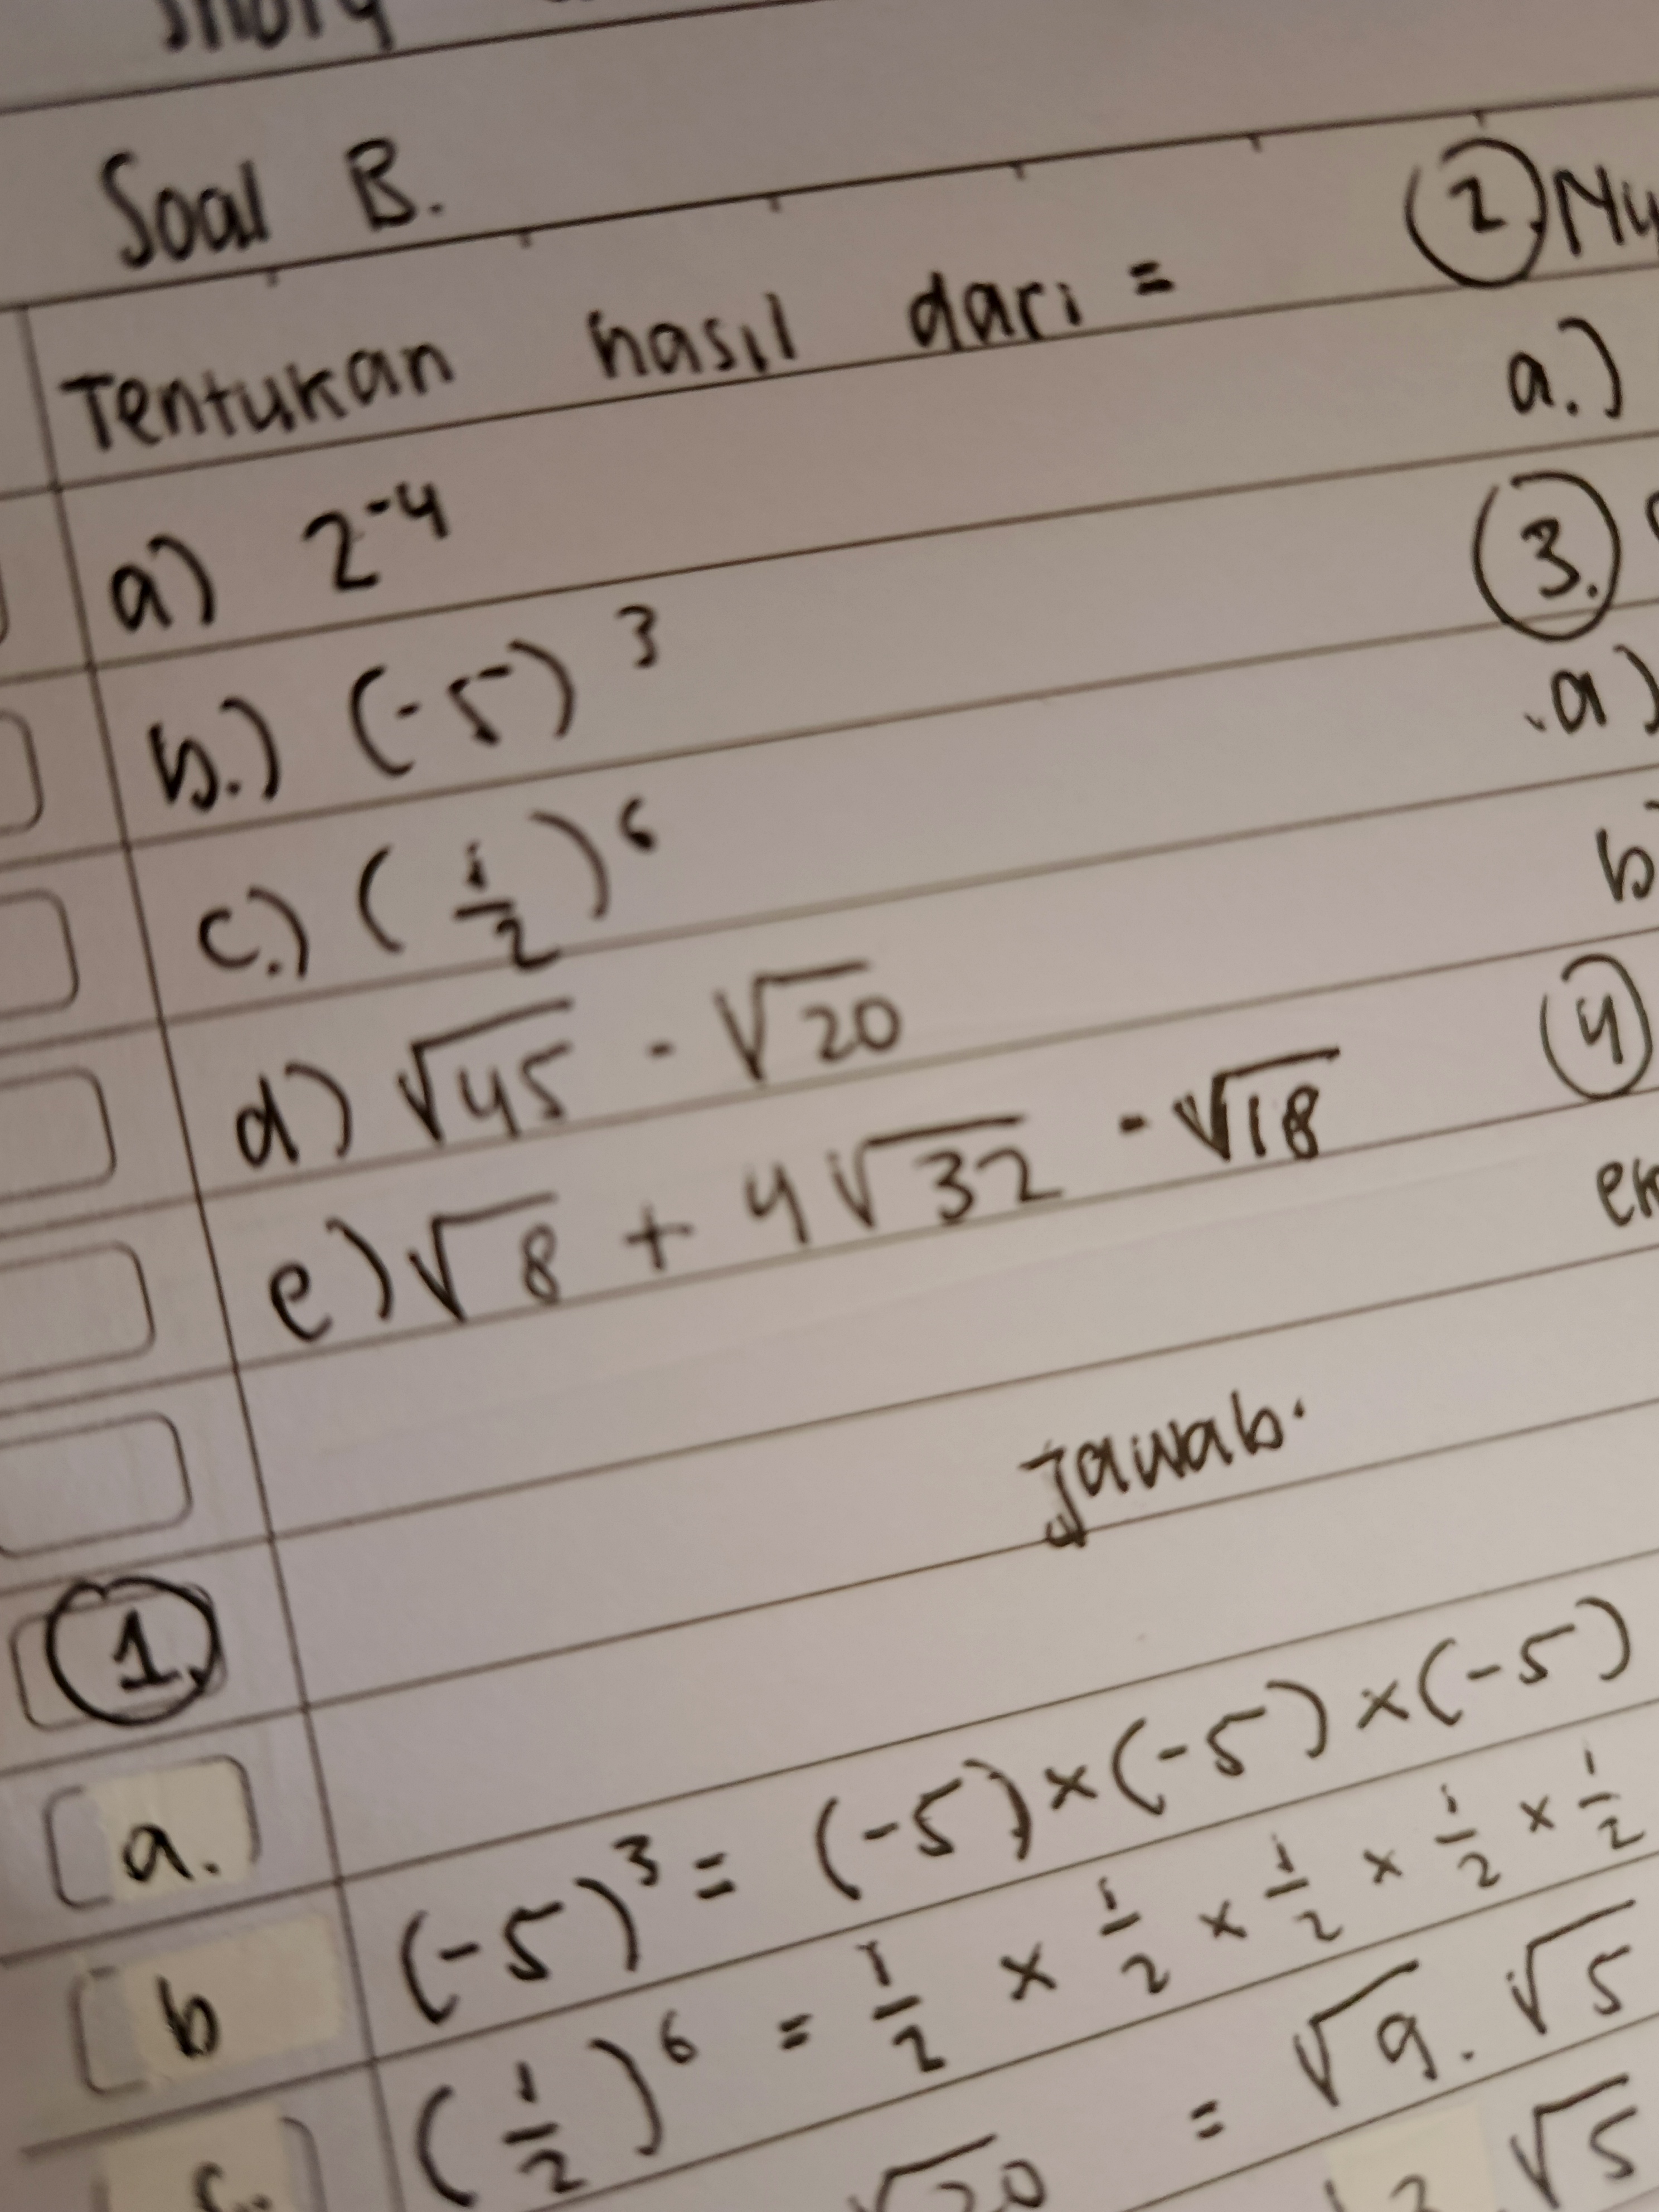 Soal B.
Tentukan hasil dari =
a) 2⁻⁴
b.) (-5)³
c.) (1/2)⁶
d) √45 - √20
e) √8 + 4√32 - √18
2
a.)
3.
a)
b
4
Jawab.
1.
a.
(-5)³ = (-5)×(-5)×(-5)
b
(1/2)⁶ = 1/2 × 1/2 × 1/2 × 1/2 × 1/2
√20 = √9 . √5
√5